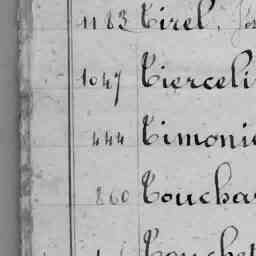 1183 Tirel,
1047 Tierceli
444 Timonie
860 Toucha
Touchet